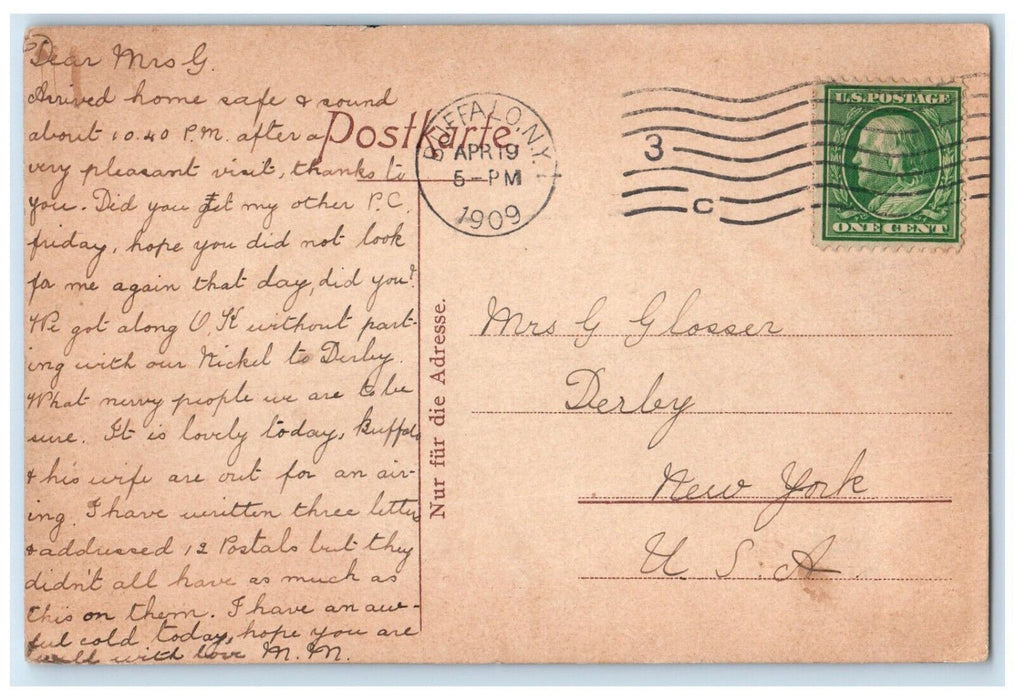 Dear Mrs G.
Arrived home safe & sound
about 10.40 P.M. after a
very pleasant visit, thanks to
you. Did you get my other P.C.
friday, hope you did not look
for me again that day, did you?
We got along O.K without part-
ing with our Nickel to Derby.
What nervy people we are to be
sure. It is lovely today, Buffalo
& his wife are out for an air-
ing. I have written three letters
& addressed 12 Postals but they
didn't all have as much as
this on them. I have an aw-
ful cold today, hope you are
well with love M.M.
Postkarte.
Nur für die Adresse.
BUFFALO, N.Y.
APR 19
5-PM
1909
3
C
U.S. POSTAGE
ONE CENT
Mrs G Glosser
Derby
New York
U. S. A.